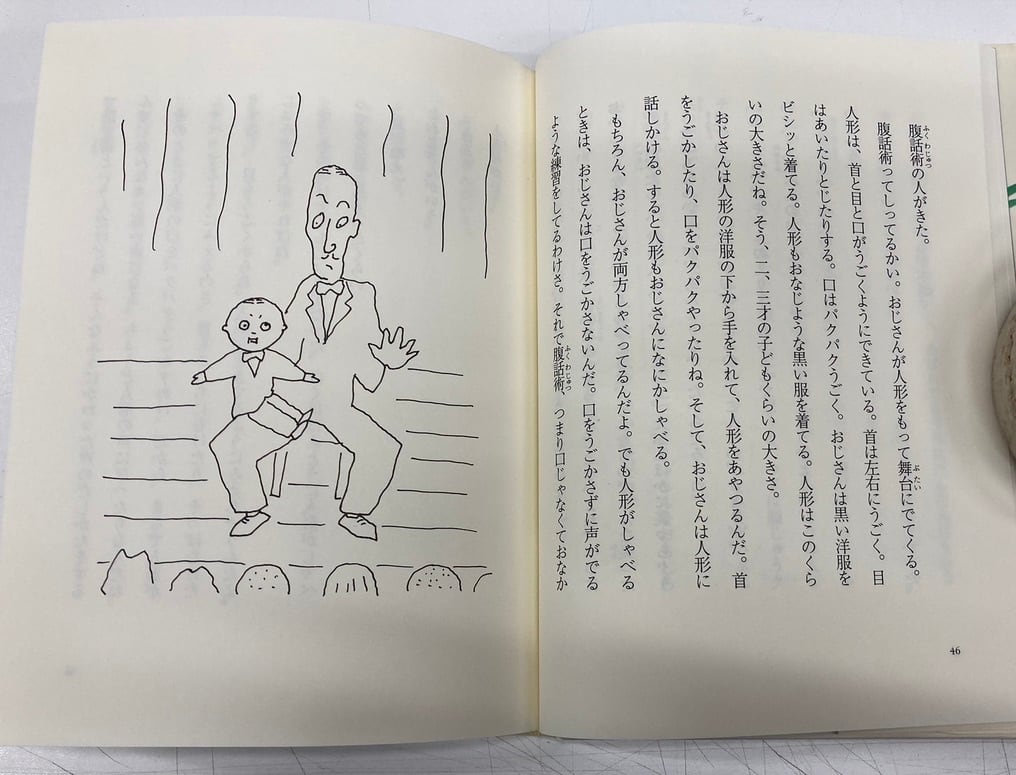 腹話術の人がきた。
腹話術ってしってるかい。おじさんが人形をもって舞台にでてくる。
人形は、首と目と口がうごくようにできている。首は左右にうごく。目
はあいたりとじたりする。口はパクパクうごく。おじさんは黒い洋服を
ビシッと着てる。人形もおなじような黒い服を着てる。人形はこのくら
いの大きさだね。そう、二、三才の子どもくらいの大きさ。
おじさんは人形の洋服の下から手を入れて、人形をあやつるんだ。首
をうごかしたり、口をパクパクやったりね。そして、おじさんは人形に
話しかける。すると人形もおじさんになにかしゃべる。
もちろん、おじさんが両方しゃべってるんだよ。でも人形がしゃべる
ときは、おじさんは口をうごかさないんだ。口をうごかさずに声がでる
ような練習をしてるわけさ。それで腹話術、つまり口じゃなくておなか
46